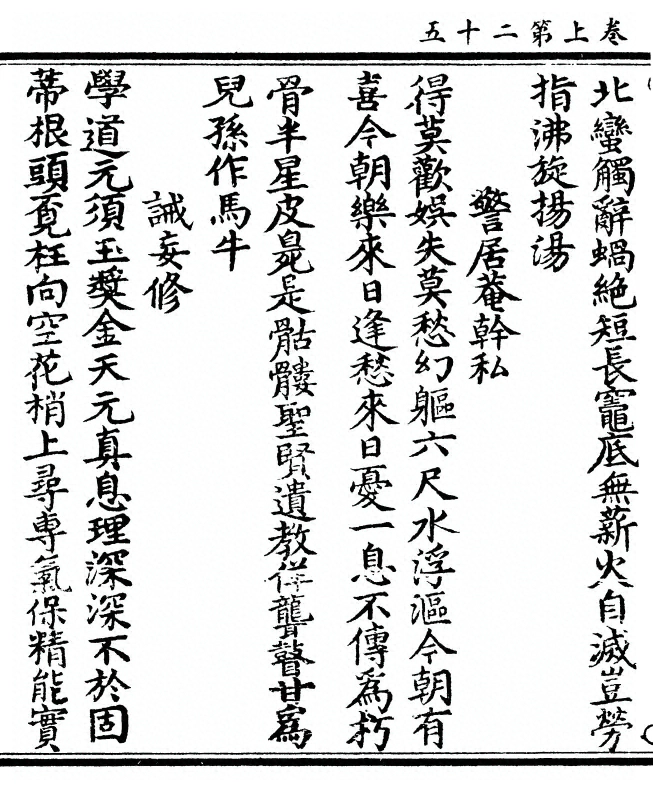 卷上第二十五
北蠻觸辭蝸絶短長竈底無薪火自滅豈勞
指沸旋揚湯
警居菴幹私
得莫歡娛失莫愁幻軀六尺水浮漚今朝有
喜今朝樂來日逢愁來日憂一息不傳爲朽
骨半星皮臰是骷髏聖賢遺教佯聾瞽甘爲
兒孫作馬牛
誡妄修
學道元須玉獎金天元真息理深深不於固
蒂根頭覓枉向空花梢上尋專氣保精能實